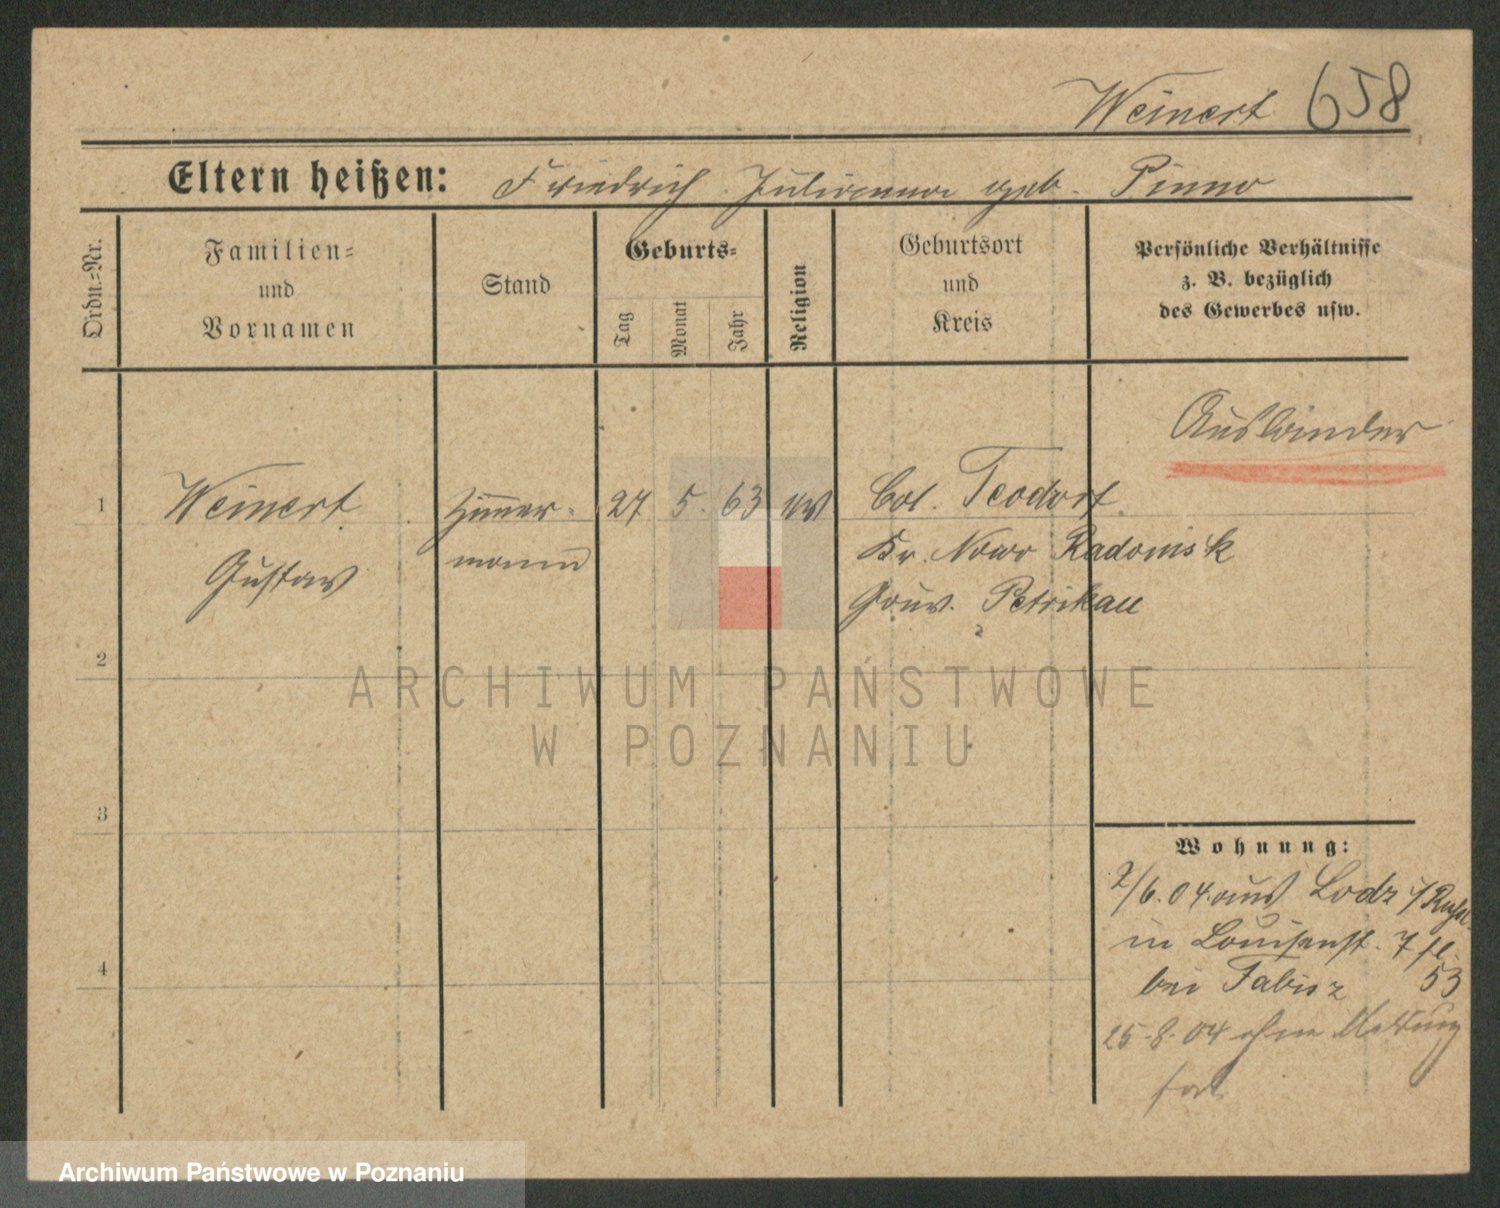 Weinert 658
Eltern heißen: Friedrich Julianna geb. Pinno
Ordn.=Nr.
Familien=
und
Vornamen
Stand
Geburts=
Tag
Monat
Jahr
Religion
Geburtsort
und
Kreis
Persönliche Verhältnisse
z. B. bezüglich
des Gewerbes usw.
Ausländer
1 Weinert Zimmer- 27 5. 63 ev Col. Teodorf
mann Kr. Nowo Radomsk
Gustav Gouv. Petrikau
2
3
4
Wohnung:
2/6.04. aus Lodz
in Louisenst. 7
bei Fabisz 53
25.8.04 ohne Meldung
fort
ARCHIWUM PAŃSTWOWE
W POZNANIU
Archiwum Państwowe w Poznaniu